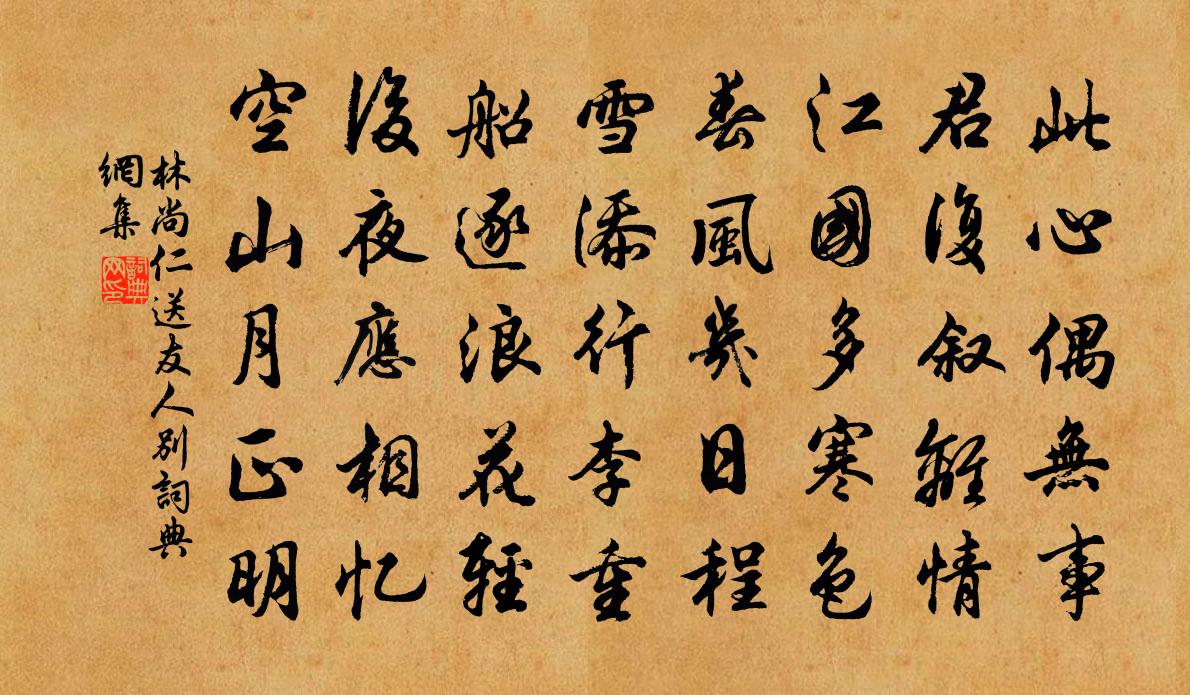 此心偶無事
君復叙離情
江國多寒色
春風幾日程
雪添行李重
船逐浪花輕
後夜應相忆
空山月正明
林尚仁送友人別詞典
網集
詞典
网印